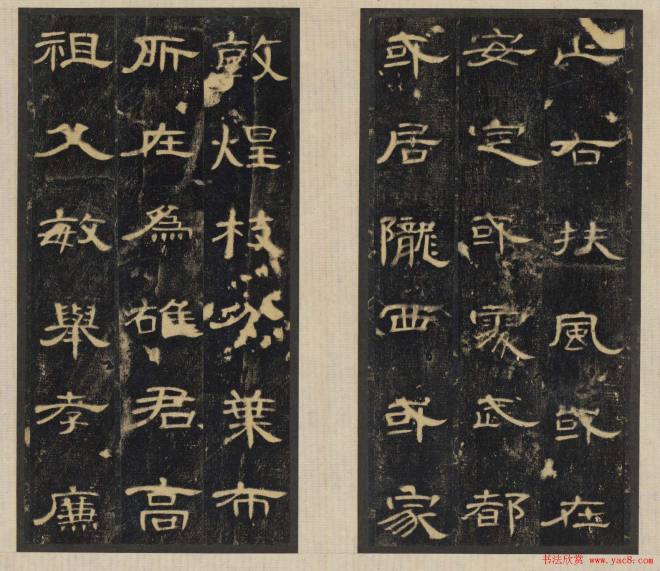 止右扶風或在
安定或處武都
或居隴西或家
敦煌枝分葉布
所在為雄君高
祖父敏舉孝廉
书法欣赏 www.yac8.com